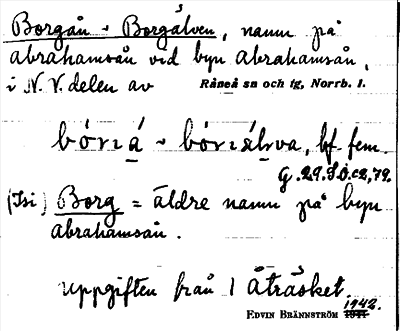 Borgån ~ Borgälven, namn på
abrahamsån vid byn abrahamsån,
i N.V. delen av Råneå sn och tg, Norrb. l.
bf. fem.
G. 29.
Borg = äldre namn på byn
abrahamsån.
uppgiften från 1 Åträsket.
1942.
EDVIN BRÄNNSTRÖM 1941